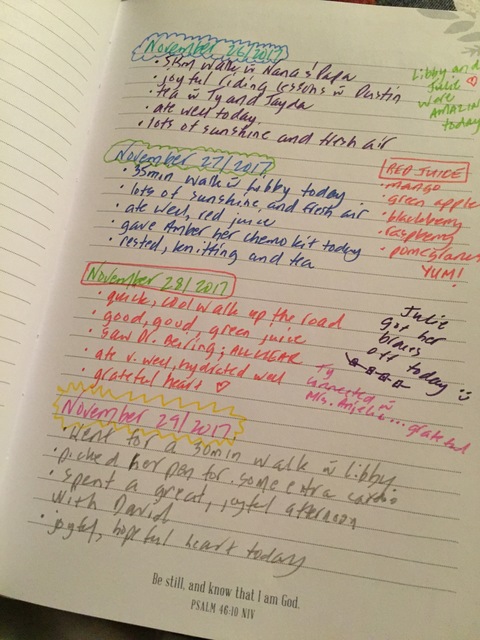 November 26/2017
• 5km walk w̄ Nana & Papa
• joyful riding lessons w̄ Dustin
• tea w̄ Ty and Jayda
• ate well today
• lots of sunshine and fresh air
Libby and
Julie ♡
were
AMAZING
today
November 27/2017
• 35min walk w̄ Libby today
• lots of sunshine and fresh air
• ate well, red juice
• gave Amber her chemo kit today
• rested, knitting and tea
RED JUICE
• mango
• green apple
• blackberry
• raspberry
• pomegranate
YUM!
November 28/2017
• quick, cool walk up the road
• good, good, green juice
• saw Dr. ALL CLEAR
• ate v. well, hydrated well
• grateful heart ♡
Julie
Got her
braces
off today
Ty
connected w̄
Mrs. ... grateful
November 29/2017
• Went for a 30min walk w̄ Libby
• picked her pen for some extra cardio
• spent a great, joyful afternoon
with David
• joyful, hopeful heart today
Be still, and know that I am God.
PSALM 46:10 NIV